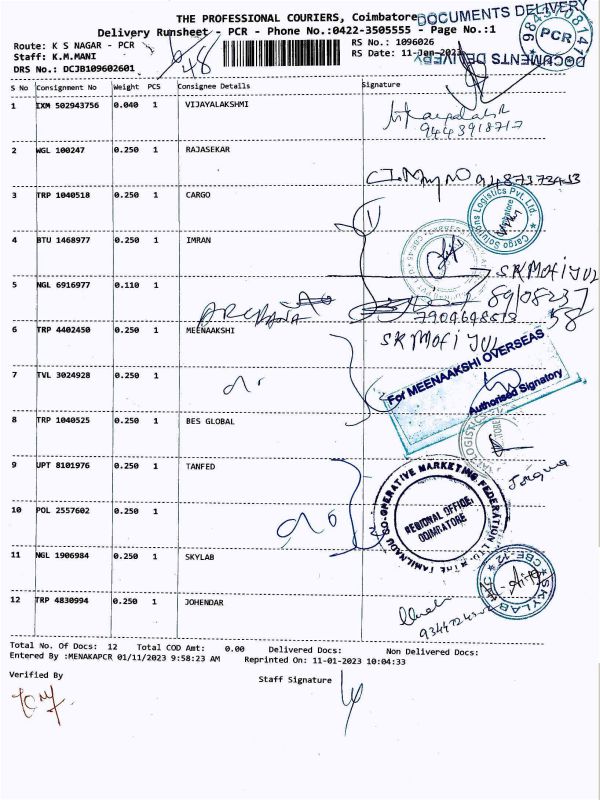 THE PROFESSIONAL COURIERS, Coimbatore
DOCUMENTS DELIVERY
Delivery Runsheet - PCR - Phone No.:0422-3505555 - Page No.:1
PCR
Route: K S NAGAR - PCR
RS No.: 1096026
Staff: K.M.MANI
RS Date: 11-Jan-2023
DOCUMENTS DELIVERY
DRS No.: DCJB109602601
48
S No Consignment No Weight PCS Consignee Details Signature
1 IXM 502943756 0.040 1 VIJAYALAKSHMI
9443918717
2 WGL 100247 0.250 1 RAJASEKAR
3 TRP 1040518 0.250 1 CARGO
Cargo Solutions Logistics Pvt. Ltd.
4 BTU 1468977 0.250 1 IMRAN
SK Mofi JUL
5 NGL 6916977 0.110 1
6 TRP 4402450 1 MEENAAKSHI
SK Mofi JUL
For MEENAAKSHI OVERSEAS
Authorised Signatory
7 TVL 3024928 0.250 1
8 TRP 1040525 0.250 1 BES GLOBAL
9 UPT 8101976 0.250 1 TANFED
CO-OPERATIVE MARKETING FEDERATION LTD.
REGIONAL OFFICE,
COIMBATORE
10 POL 2557602 0.250 1
11 NGL 1906984 0.250 1 SKYLAB
SKYLAB CBE-12
12 TRP 4830994 0.250 1 JOHENDAR
Total No. Of Docs: 12 Total COD Amt: 0.00 Delivered Docs: Non Delivered Docs:
Entered By :MENAKAPCR 01/11/2023 9:58:23 AM Reprinted On: 11-01-2023 10:04:33
Verified By
Staff Signature